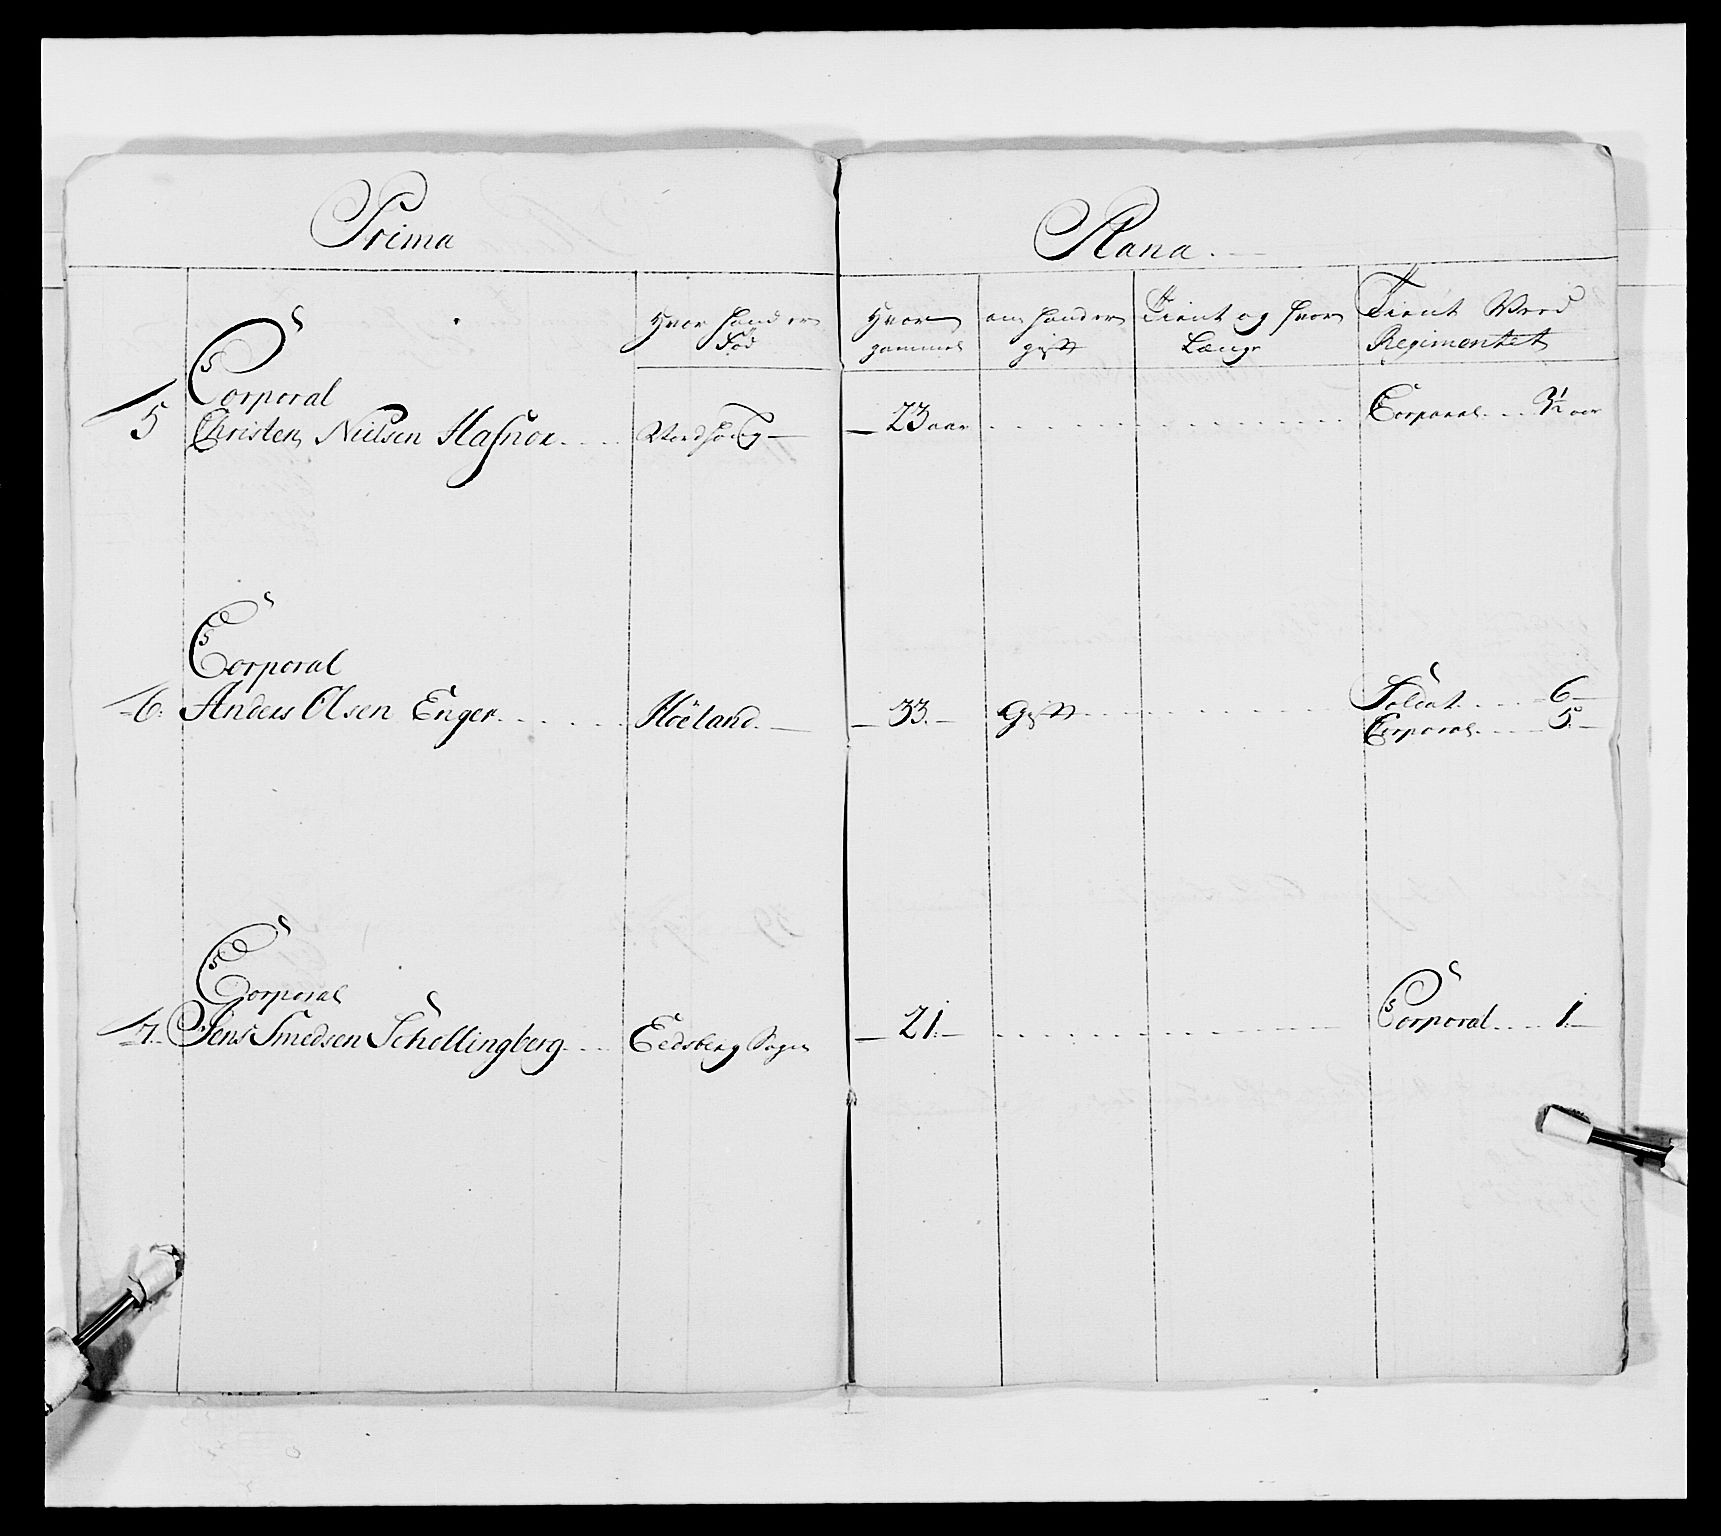 Prima Plana.
Hvor hand er Föd
Hvor gammel
om hand er gift
Tient og hvor Længe
Tient Ved Regimentet
Corporal
5 Christen Nielsen Hafnor.... 23 aar Corporal.... 3½ aar
Corporal
6. Anders Olsen Enger...... Höeland. 33. Gift Soldat.... 6
Corporal.... 5.
Corporal
7. Jens Smedsen Schollingberg.... Eedsberg Sogn 21. Corporal.... 1.